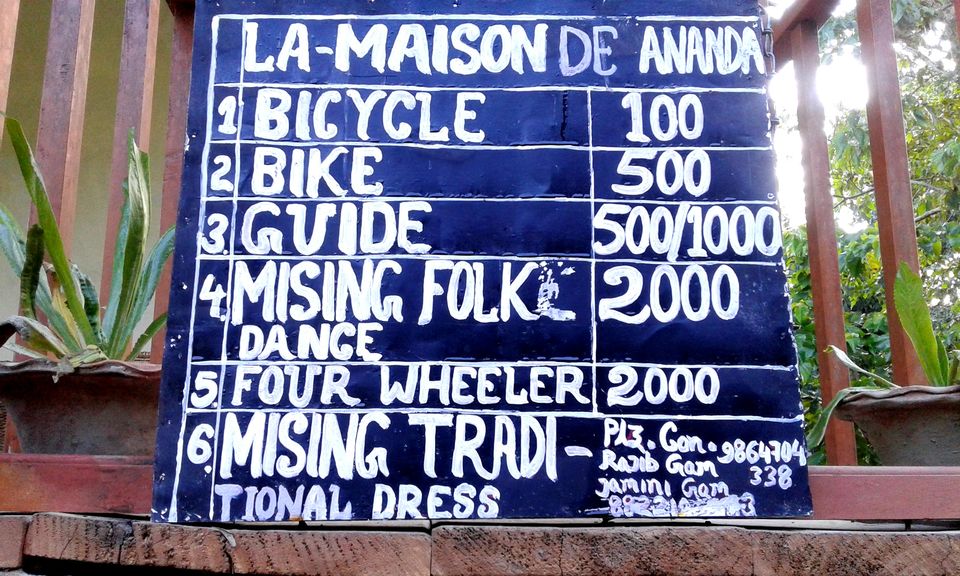 LA-MAISON DE ANANDA
1 BICYCLE 100
2 BIKE 500
3 GUIDE 500/1000
4 MISING FOLK 2000
DANCE
5 FOUR WHEELER 2000
6. MISING TRADI-
TIONAL DRESS
Plz. Con. 9864704
338
Rajib Gam
Jamini Gam